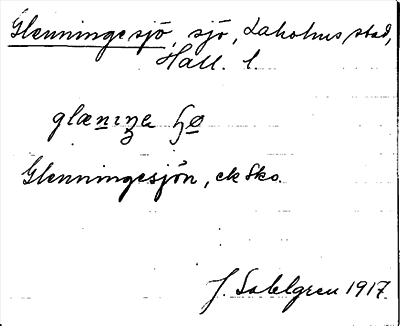 Glenningesjö, sjö, Laholms stad,
Hall. l.
Glenningesjön, ek Sko.
J. Sahlgren 1917.